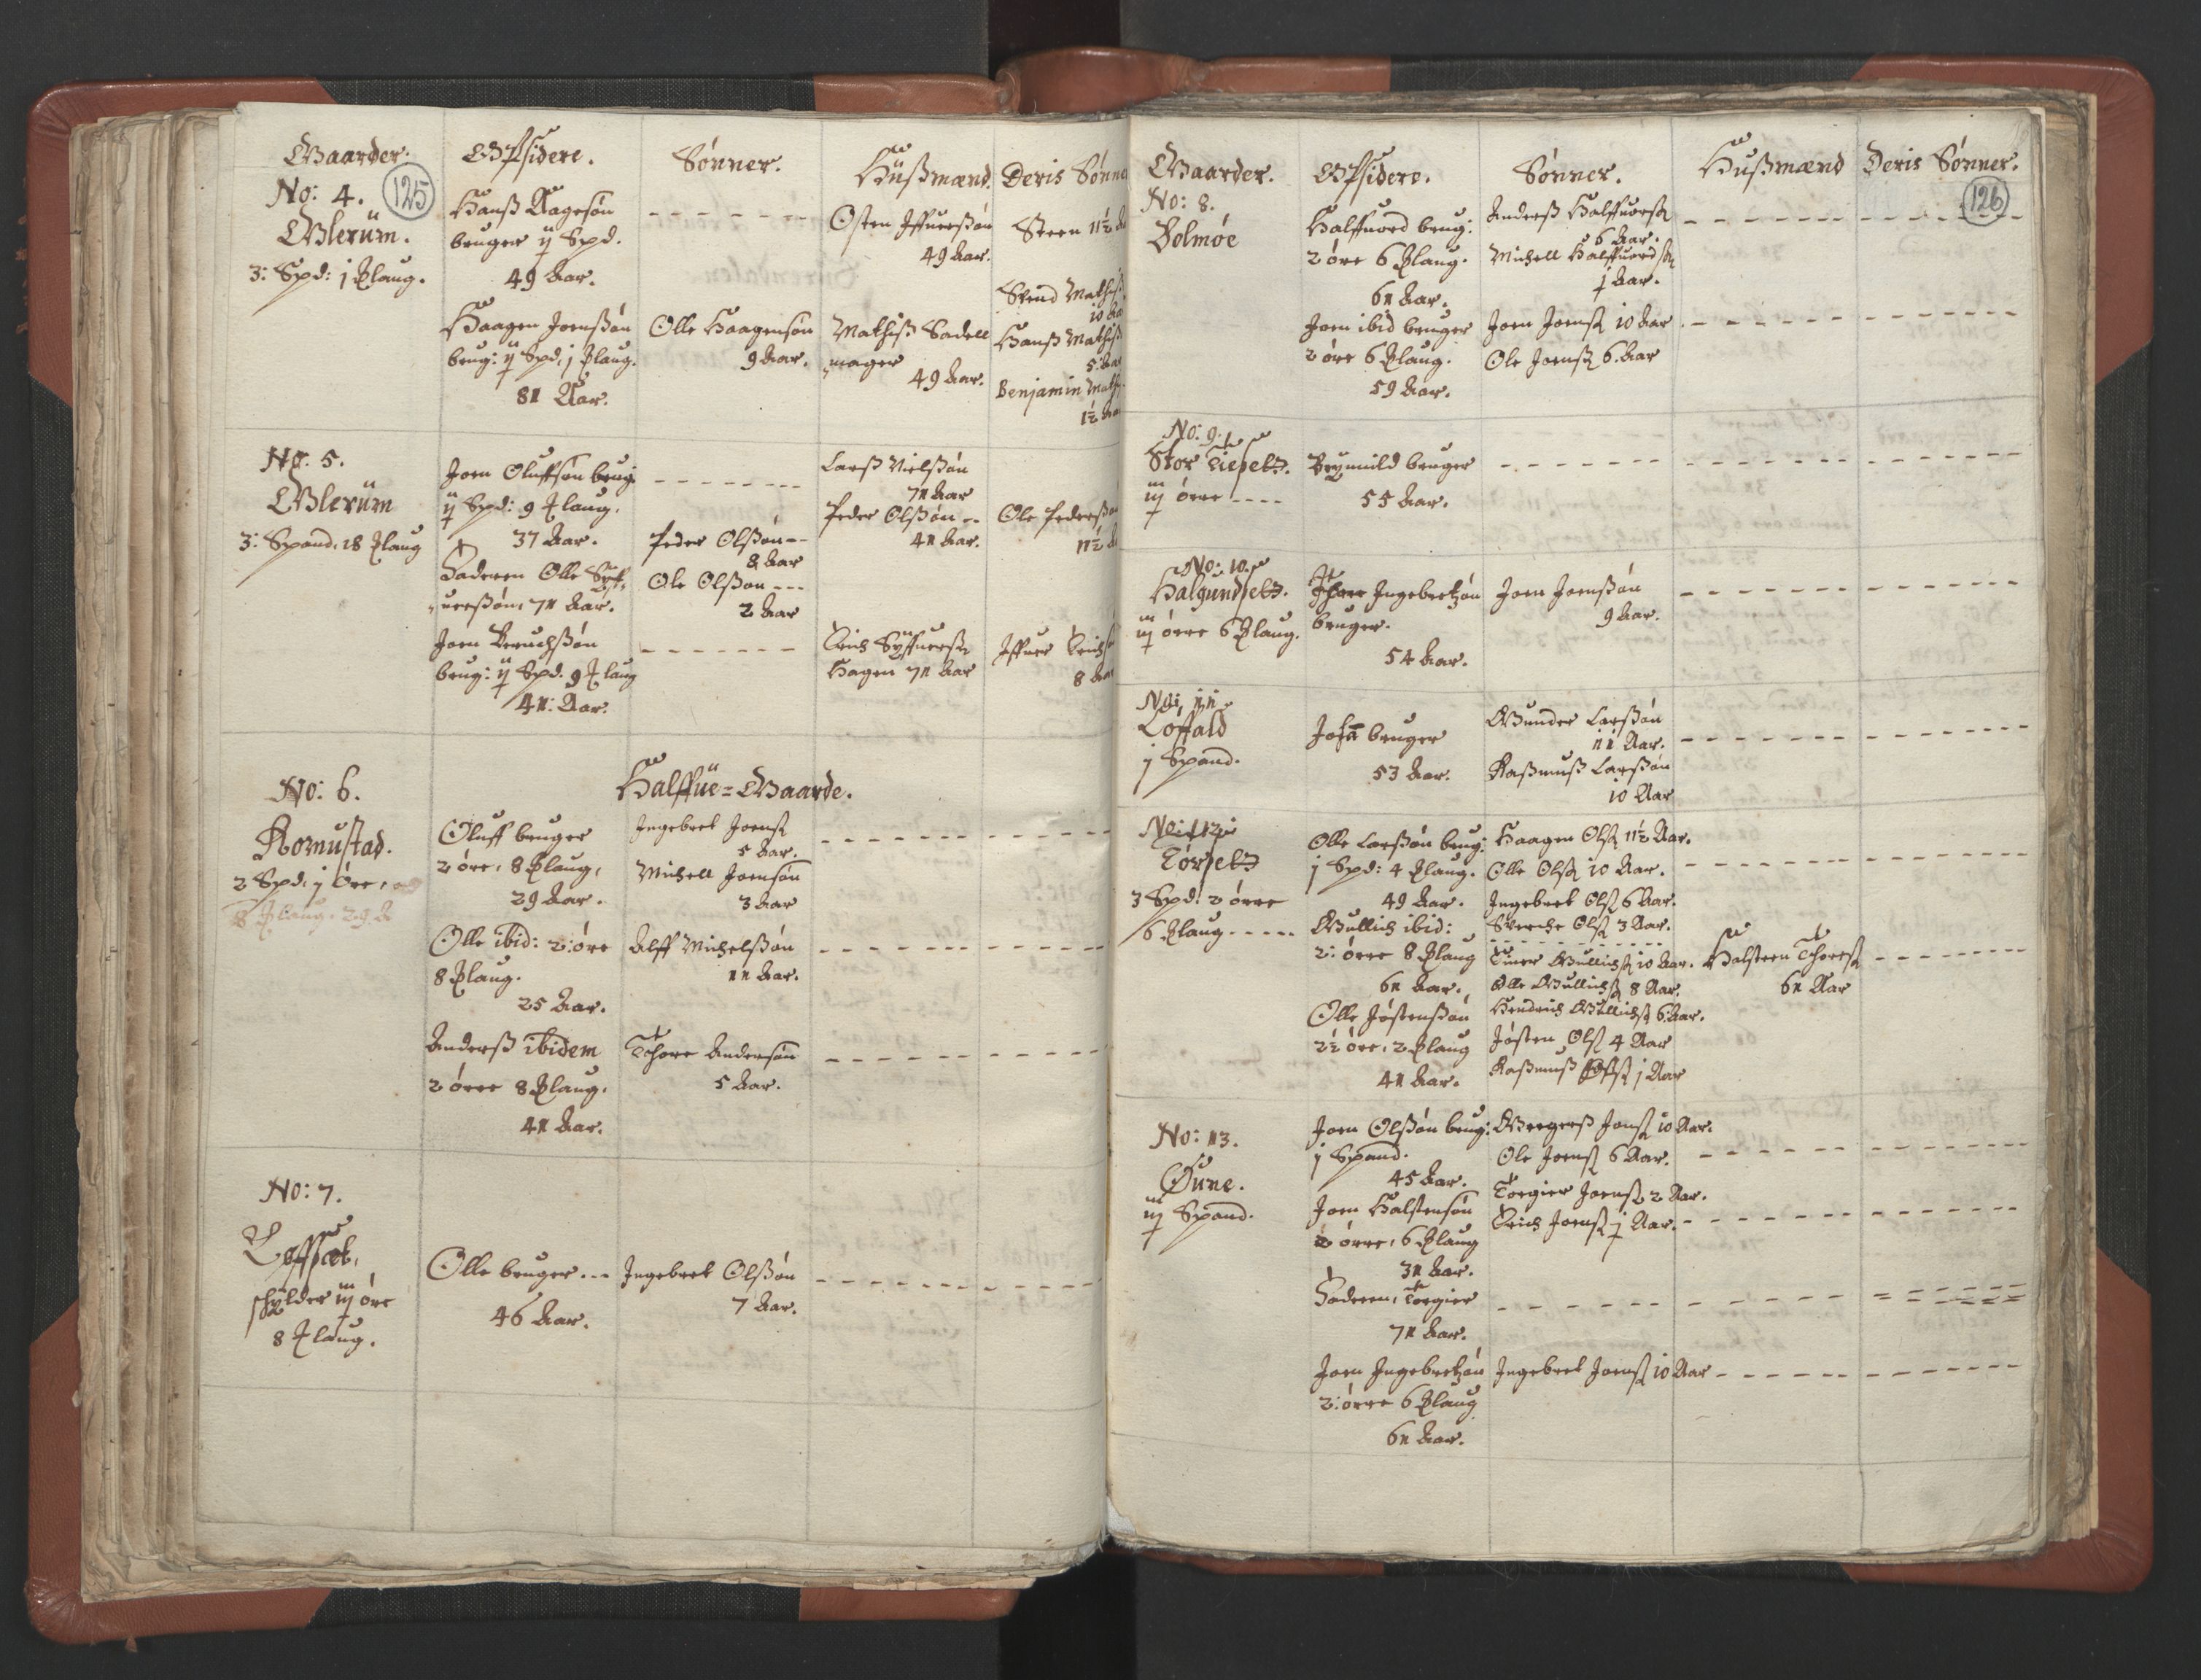 Gaarder.
Opsidere.
Sønner.
Hüßmænd.
Deris Sønne
No: 4.
125
Glerüm.
3: Spd: j ℔laug.
Hanß Aagesøn
bruger ij Spd.
49 Aar.
- - - - - - -
Osten Jffuerßøn
49 Aar.
Steen 11½ A
Haagen Joenßøn
brug: ij Spd, j ℔laug.
81 Aar.
Olle Haagensøn
9 Aar.
Mathiß Sadell
mager
49 Aar.
Svend Mathiß
10 Aa
Hanß Mathiß
5: Aar
Benjamin Math
1½ Aa
No. 5.
Glerüm
3: Spand, 18 ℔laug
Joen Oluffsøn brug:
ij Spd: 9 ℔laug.
37 Aar.
- - - - - - -
Larß Nielßøn
71 Aar
Faderen Olle
uerßøn, 71 Aar.
Peder Olßøn--
8 Aar
Ole Olßøn ---
2 Aar
Peder Olßøn --
41 Aar.
Ole Pederßø
11½ A
Joen
brug: ij Spd. 9 ℔laug
41: Aar.
- - - - - - -
Erich Syffuerß
Hagen 71 Aar
Jffuer Erichs
8 Aar
No: 6.
Halffüe=Gaarde.
Romustad.
2 Spd, j Øre,
8 ℔laug. 29 A
Oluff bruger
2 øre, 8 ℔laug,
29 Aar.
Ingebret Joenß
5 Aar.
Michell Joensøn
3 Aar
- - - - - - -
Olle ibid: 2: øre
8 ℔laug.
25 Aar.
Alff Michelßøn
11 Aar.
- - - - - - -
Anderß ibidem
2 øre 8 ℔laug.
41 Aar.
Thore Andersøn
5 Aar.
- - - - - - -
No: 7.
schylder iij øre
8 ℔laug.
Olle bruger...
46 Aar.
Ingebret Olßøn
7 Aar.
- - - - - - -
Gaarder.
Opsidere.
Sønner.
Hußmænd
Deris Sønner.
126
No: 8.
Bolmøe
Halffuord brug:
2 øre 6 ℔laug.
61 Aar.
Anderß Halffuorß
6 Aar.
Michell Halffuordß
j Aar.
- - - - - - -
Joen ibid bruger
2 øre 6 ℔laug.
59 Aar.
Joen Joenß 10 Aar
Ole Joenß 6. Aar
- - - - - - -
No: 9.
Stor
iij øre ----
bruger
55 Aar.
- - - - - - -
No: 10.
Halgundset.
iij øre 6 ℔laug.
Ingebretzøn
bruger.
54 Aar.
Joen Joenßøn
9 Aar.
- - - - - - -
No: 11.
Løffald
j Spand.
Joha bruger
53 Aar.
Gunder Larßøn
11 Aar.
Raßmuß Larßøn
10 Aar
- - - - - - -
No: 12.
Tørset
3 Spd: 2 øre
6 ℔laug -----
Olle Larßøn brug:
j Spd: 4 ℔laug.
49 Aar.
Haagen Olß 11½ Aar.
Olle Olß 10 Aar.
Ingebret Olß 6 Aar.
Sverche Olß 3 Aar.
- - - - - - -
Gullich ibid:
2: øre 8 ℔laug
61 Aar.
Einer Gullichß 10 Aar.
Olle Gullichß 8 Aar.
Hendrich Gullichß 6. Aar.
Halsteen Thoreß
61 Aar
- - - - - - -
Olle Jøstenßøn
2½ øre, 2 ℔laug
41 Aar.
Jøsten Olß 4 Aar
Raßmuß Olß j Aar
No: 13.
Øune.
iij Spand.
Joen Olßøn brug:
j Spand.
45 Aar.
Gregerß Jonß 10 Aar.
Ole Joenß 6 Aar.
- - - - - - -
Joen Halstensøn
2 øre, 6 ℔laug
31 Aar.
Torgier Joenß 2 Aar.
Erich Joenß j Aar.
- - - - - - -
Faderen, Torgier
71 Aar.
- - - - - - -
Joen Ingebretzøn
2: øre 6 ℔laug
61 Aar.
Ingebret Joenß 10 Aar
- - - - - - -